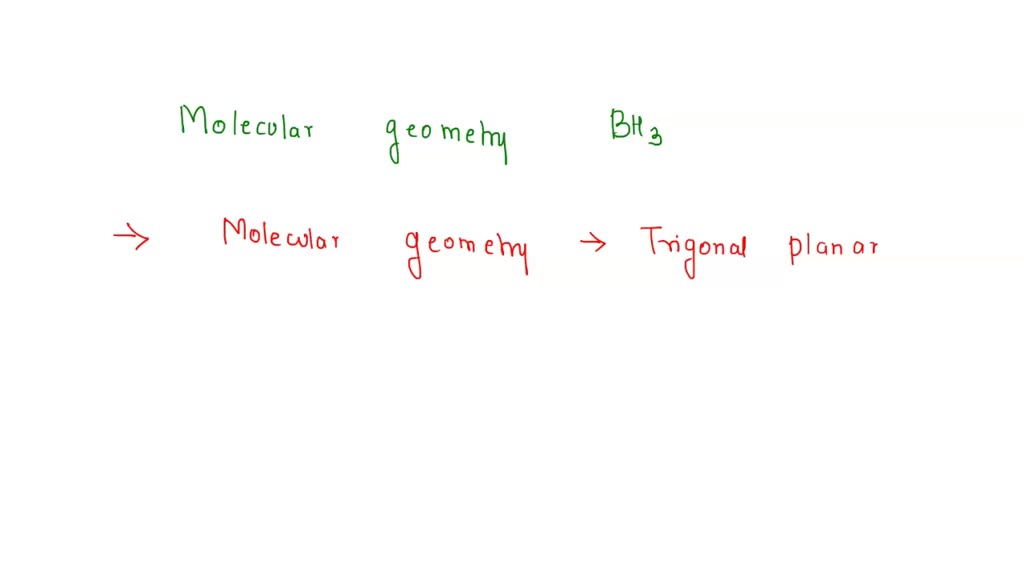 Molecular geometry BH3
→ Molecular geometry → Trigonal planar